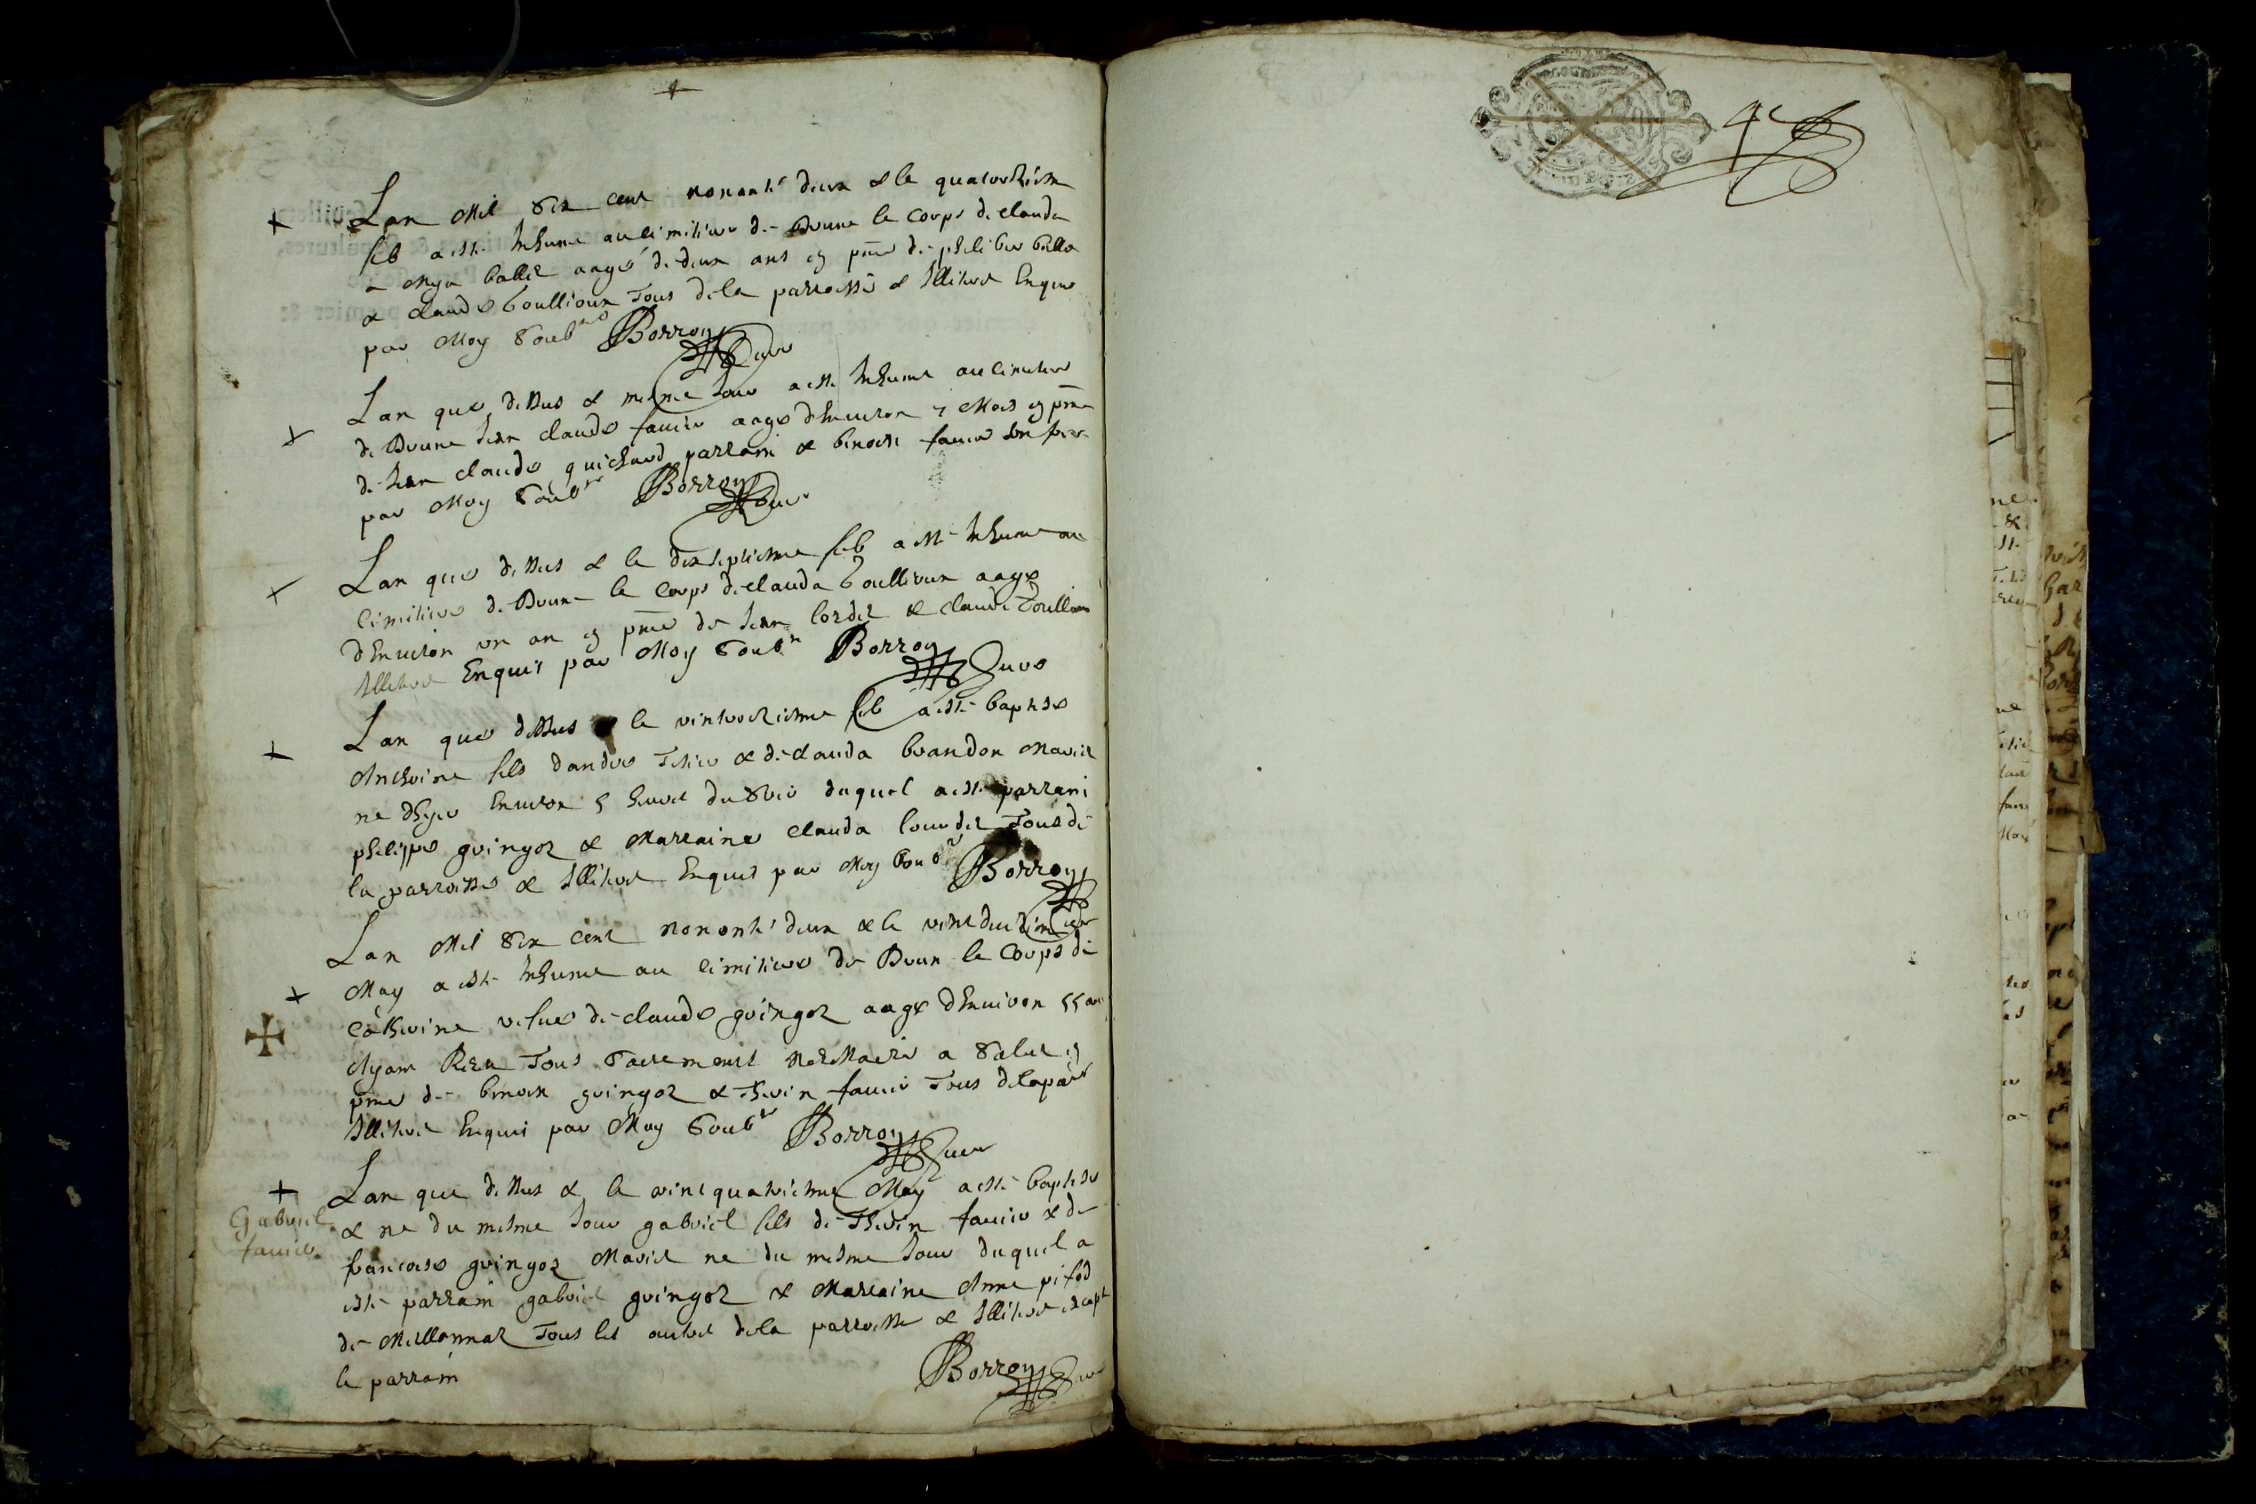 Lan Mil Six cent nonante deux & le quatorziesme
feb a este Inhume au cimitiere de Druune le corps de claude
aage de deux ans en pnce de philiber
& claude boullioux Tous de la parroisse & Illiteres Enquis
par Moy Soubne Borron Cure
Lan que dessus & mesme Jour a este Inhume au cimitiere
de Druune Jean claude favier aage denviron 7 Mois en pnce
de Jean claude guichard parrain & benoist favier son pere
par Moy Soubne Borron Cure
Lan que dessus & le dixseptiesme feb a este Inhume au
cimitiere de Druune le corps de clauda boullioux aage
denviron un an en pnce de Jean cordel & claude boullioux
Illiteres Enquis par Moy Soubne Borron Cure
Lan que dessus & le vintroiziesme feb a este baptise
Anthoine fils dandre Tetier & de clauda brandon Maries
ne dhyer Environ 5 heures du Soir duquel a este parrain
philippe guingoz & Marraine clauda Tous de
la parroisse & Illiteres Enquis par Moy Soubne Borron
Lan Mil Six cent nonante deux & le vintdeuxiesme
May a este Inhume au cimitiere de Druun le corps de
Catherine vefue de claude guingoz aage denviron 55 ans
Ayant Receu Tous Sacrements Necessaires a Salut en
pnce de benoist guingoz & Thevin favier Tous de la parr
Illiteres Enquis par Moy Soubne Borron Cure
Gabriel
favier
Lan que dessus & le vintquatriesme May a este baptise
& ne du mesme Jour gabriel fils de Thevin favier & de
francoise guingoz Maries ne du mesme Jour duquel a
este parrain gabriel guingoz & Marraine Anne
de Tous les autres de la parroisse & Illiteres except
le parrain Borron Cure